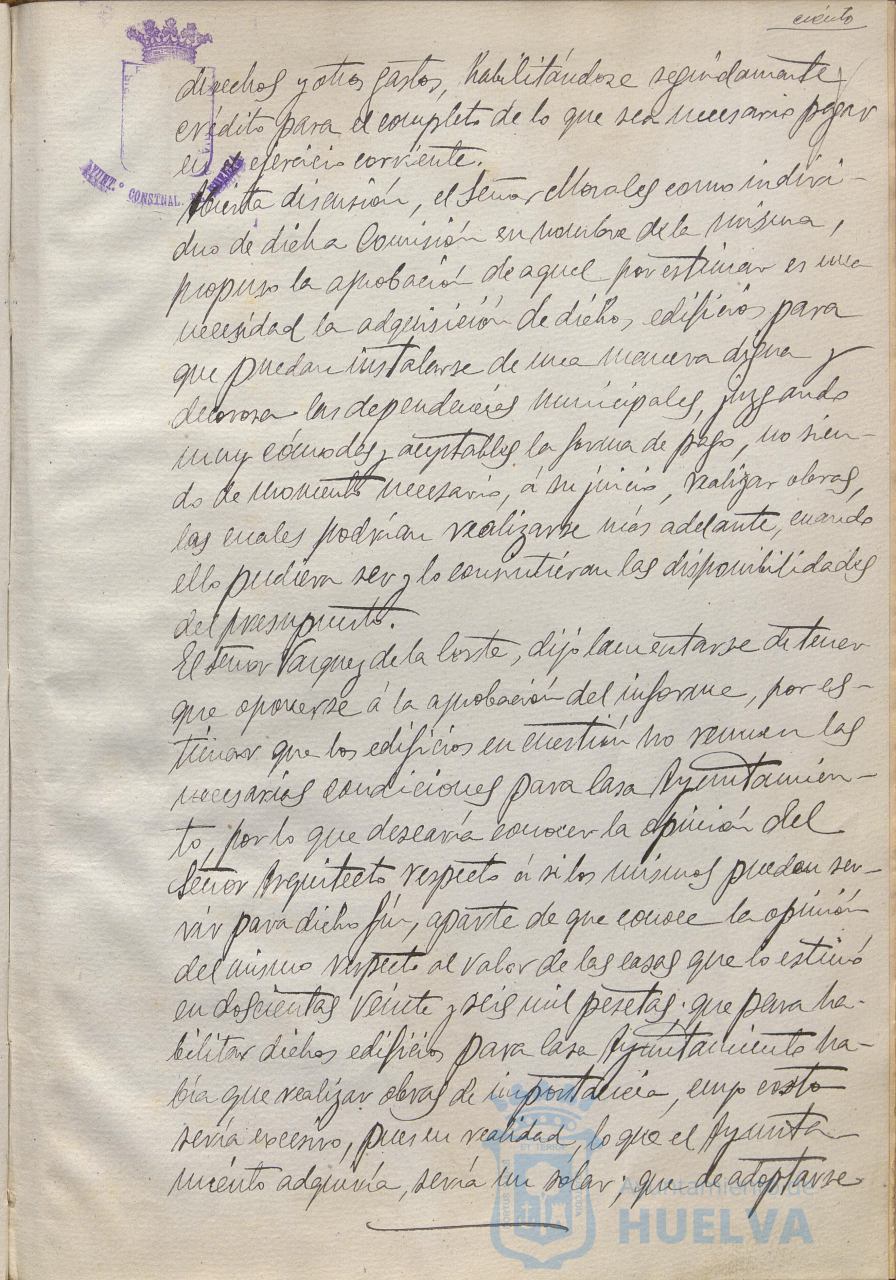 ciento
derechos y otros gastos, habilitándose seguidamente
crédito para el completo de lo que sea necesario pagar
en ejercicio corriente.
AYUNT.º CONSTNAL. DE HUELVA
Abierta discusión, el Señor Morales como indivi-
duo de dicha Comisión en nombre de la misma,
propuso la aprobación de aquel por estimar es una
necesidad la adquisición de dichos edificios para
que puedan instalarse de una manera digna y
decorosa las dependencias municipales, juzgando
muy cómodas y aceptables la forma de pago, no sien-
do de momento necesario, á su juicio, realizar obras,
las cuales podrían realizarse más adelante, cuando
ello pudiera ser y lo consintieran las disponibilidades
del presupuesto.
El Señor Vazquez de la Corte, dijo lamentarse de tener
que oponerse á la aprobación del informe, por es-
timar que los edificios en cuestión no reunen las
necesarias condiciones para Casa Ayuntamien-
to, por lo que desearía conocer la opinión del
Señor Arquitecto respecto á si los mismos pueden ser-
vir para dicho fín, aparte de que conoce la opinión
del mismo respecto al valor de las casas que lo estimó
en doscientas veinte y seis mil pesetas; que para ha-
bilitar dichos edificios para Casa Ayuntamiento ha-
bía que realizar obras de importancia, cuyo costo
sería excesivo, pues en realidad, lo que el Ayunta-
miento adquiría, sería un solar; que de adoptarse
Ayuntamiento de
HUELVA